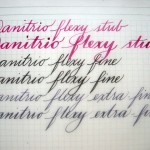 Danitrio flexy stub
Danitrio flexy stub
Danitrio flexy fine
Danitrio flexy fine
Danitrio flexy extra fine
Danitrio flexy extra fine